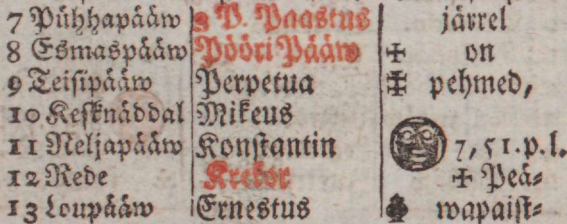 7 Pühhapääw 3 P. Paastus järrel
8 Esmaspääw Pööri Pääw on
9 Teisipääw Perpetua pehmed,
10 Kesknäddal Mikeus
11 Neljapääw Konstantin 7, 51. p. l.
12 Rede Krekor Peä⸗
13 Loupääw Ernestus wapaist⸗